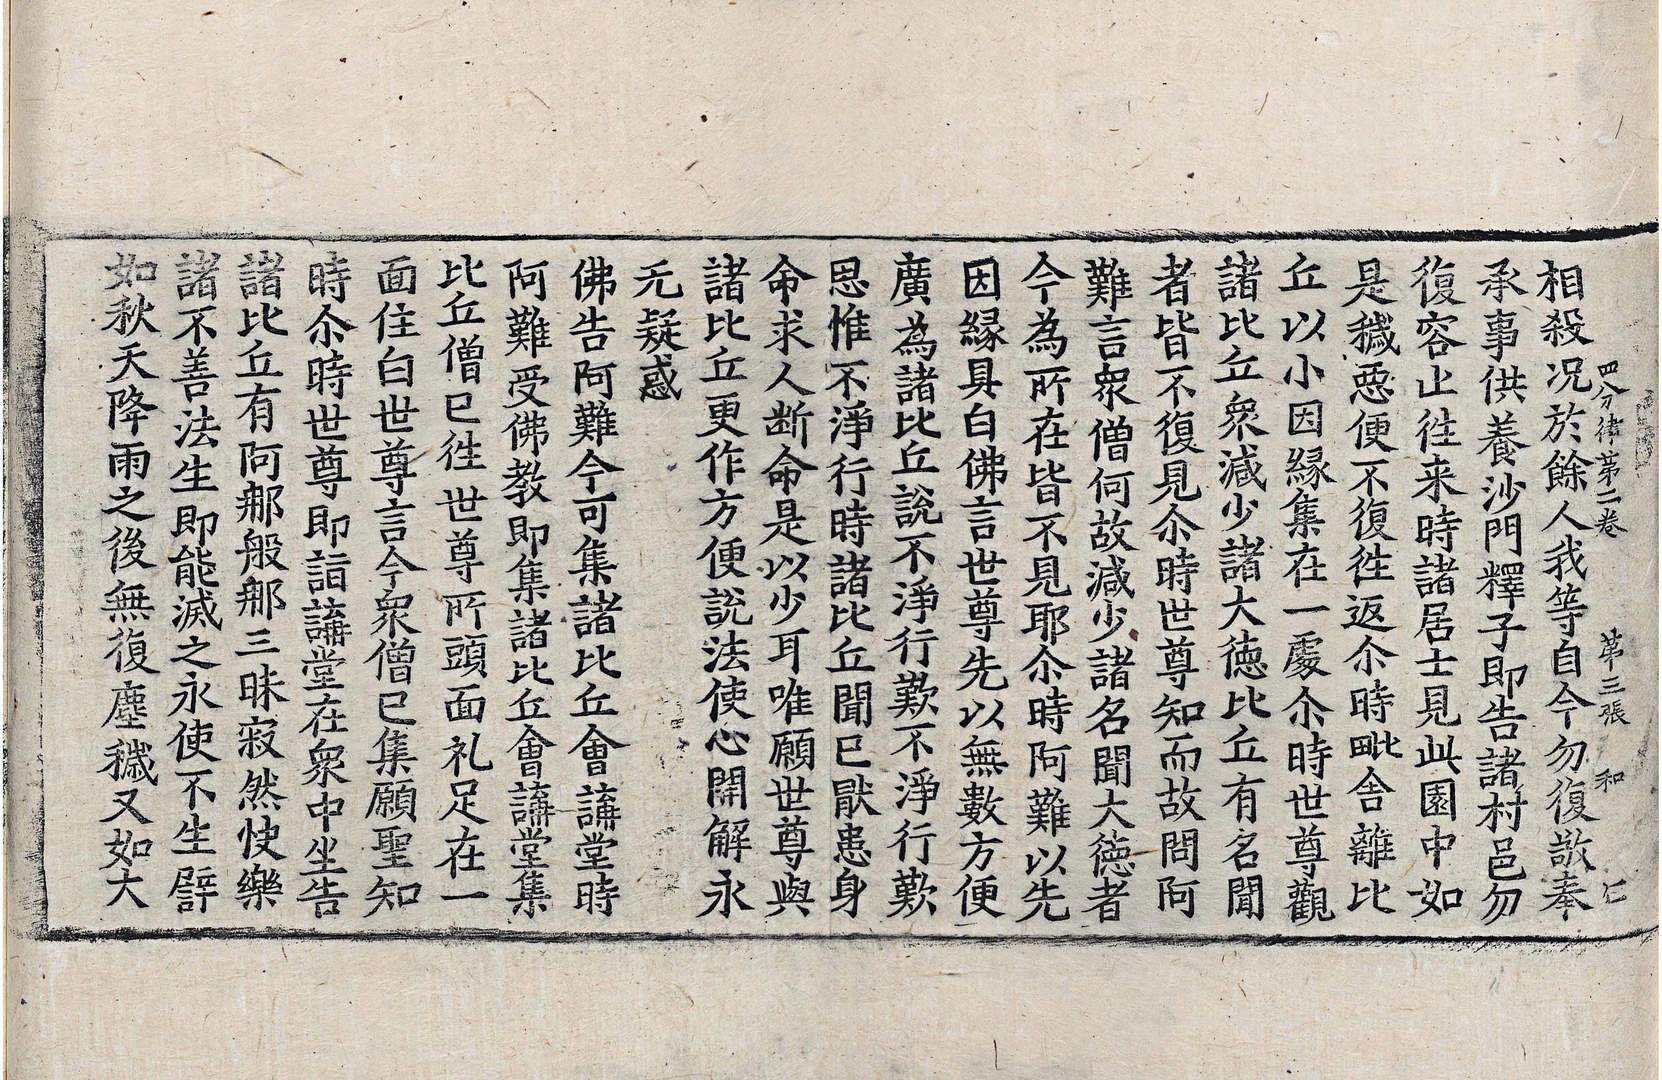 四分律第二卷 第三張 和 仁
相殺況於餘人我等自今勿復敬奉
承事供養沙門釋子即告諸村邑勿
復容止徃来時諸居士見此園中如
是穢惡便不復徃返尒時毗舍離比
丘以小因緣集在一處尒時世尊觀
諸比丘衆減少諸大德比丘有名聞
者皆不復見尒時世尊知而故問阿
難言衆僧何故減少諸名聞大德者
今為所在皆不見耶尒時阿難以先
因緣具白佛言世尊先以無數方便
廣為諸比丘說不淨行歎不淨行歎
思惟不淨行時諸比丘聞已猒患身
命求人断命是以少耳唯願世尊與
諸比丘更作方便說法使心開解永
无疑惑
佛告阿難今可集諸比丘會講堂時
阿難受佛教即集諸比丘會講堂集
比丘僧已徃世尊所頭面礼足在一
面住白世尊言今衆僧已集願聖知
時尒時世尊即詣講堂在衆中坐告
諸比丘有阿那般那三昧寂然快樂
諸不善法生即能滅之永使不生譬
如秋天降雨之後無復塵穢又如大